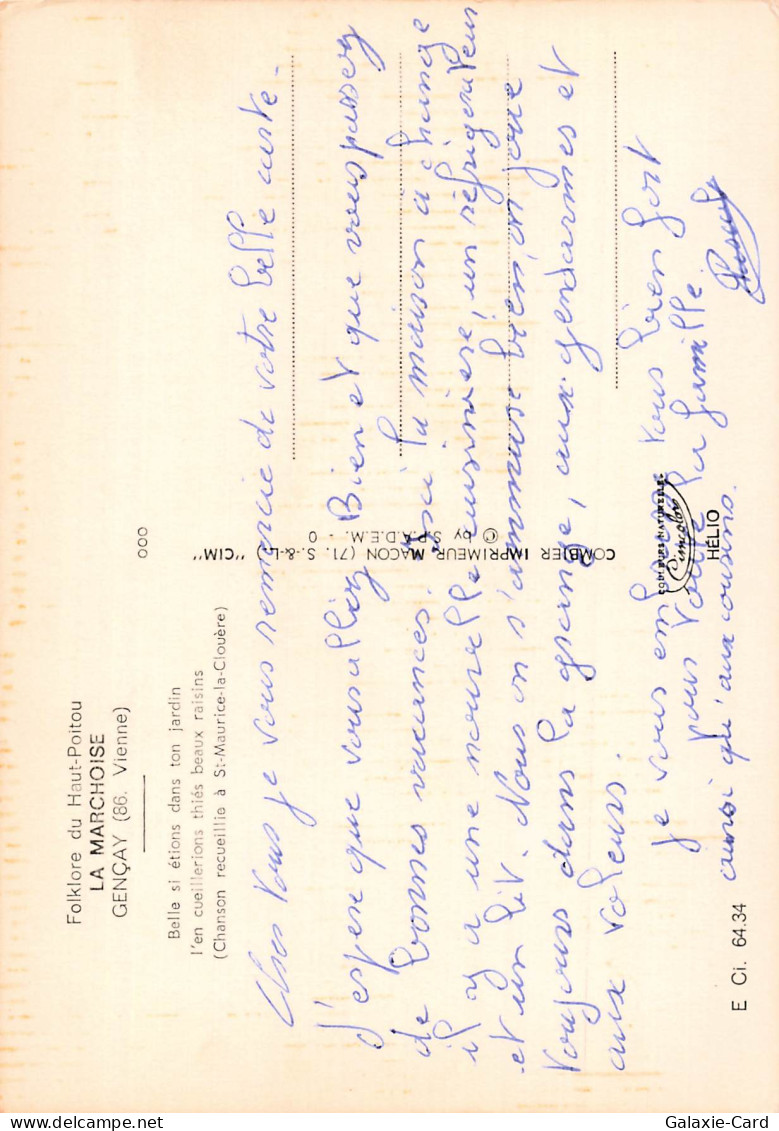 Folklore du Haut-Poitou
LA MARCHOISE
GENÇAY (86. Vienne)
Belle si étions dans ton jardin
l'en cueillerions thiés beaux raisins
(Chanson recueillie à St-Maurice-la-Clouère)
000
COMBIER IMPRIMEUR MACON (71. S.-&-L.) "CIM"
© by S.P.A.D.E.M. - 0
COULEURS NATURELLES
Cimcolor
HÉLIO
E Ci. 64.34
Chers Vous je vous remercie de votre belle carte.
J'espère que vous alliez Bien et que vous passez
de bonnes vacances. Ici la maison a changé
il y a une nouvelle cuisinière, un réfrigérateur
et un lit. Nous on s'ammuse bien, on joue
toujours dans la grange, aux gendarmes et
aux voleurs.
Je vous embrasse vous bien fort
pour toute la famille
ainsi qu'aux cousins.
Galaxie-Card